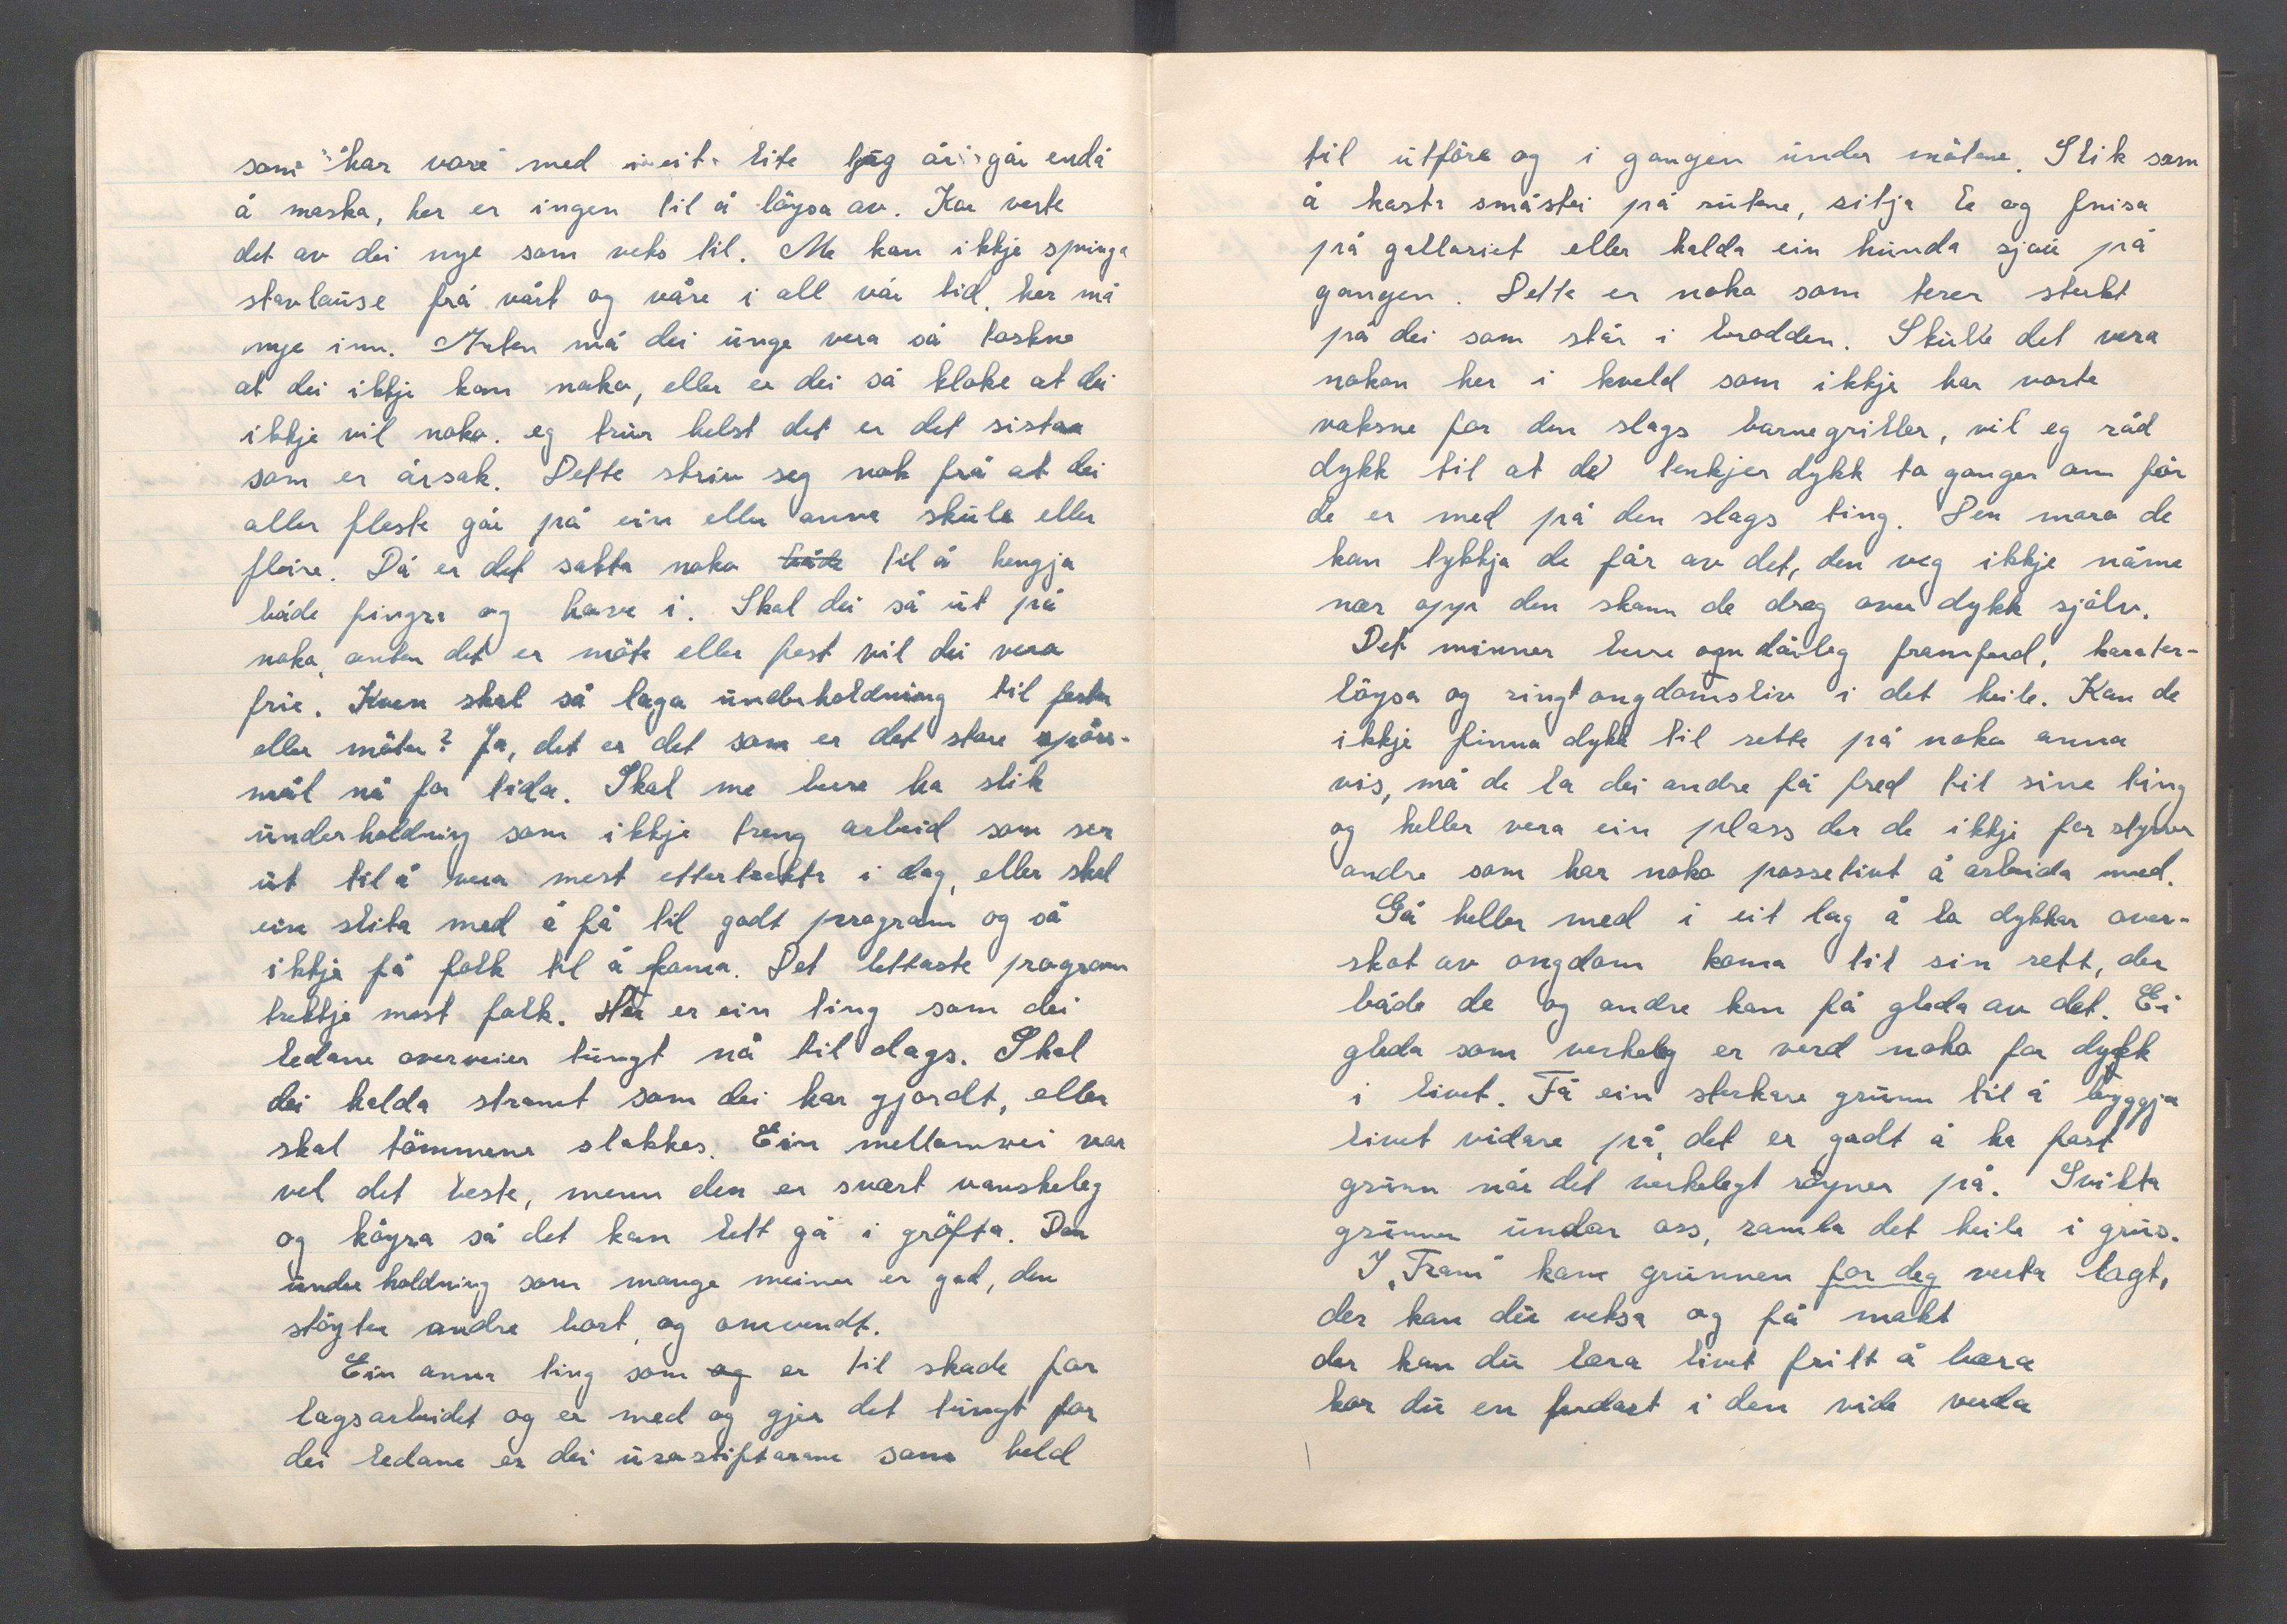 som har vore med i eit lite tjug år går endå
å maska, her er ingen til å löysa av. Kor verte
det av dei nye som veks til. Me kan ikkje springa
stavlause frå vårt og våre i all vår tid, her må
nye inn. Anten må dei unge vera så taskne
at dei ikkje kan noko, eller er dei så kloke at dei
ikkje vil noko. eg trur helst det er det sista
som er årsak. Dette skriv seg nok frå at dei
aller fleste går på ein eller anna skule eller
fleire. Då er det sakta noko både til å hengja
både fingra og hova i. Skal dei så ut på
noko, anten det er möte eller fest vil dei vera
frie. Kven skal så laga underholdning til festa
eller möter? Ja, det er det som er det store spörs-
mål nå for tida. Skal me bere ha slik
underholdning som ikkje treng arbeid som ser
ut til å vera mest ettertrakta i dag, eller skal
ein slita med å få til godt program og så
ikkje få folk til å koma. Det lettaste program
trekkje mest folk. Her er ein ting som dei
ledane overveier tungt nå til dags. Skal
dei halda stramt som dei har gjordt, eller
skal tömmene slakkes. Ein mellomvei var
vel det beste, menn den er svært vanskeleg
og köyra så det kan lett gå i gröfta. Den
underholdning som mange meiner er god, den
stöyter andre bort, og omvendt.
Ein anna ting som og er til skade for
lagsarbeidet og er med og gjer det tungt for
dei ledane er dei urostiftarane som held
til utföre og i gangen under mötene. Slik som
å kasta småstei på rutene, sitja le og fnisa
på galleriet eller halda ein hunda sjau på
gangen. Dette er noko som terer sterkt
på dei som står i brodden. Skulle det vera
nokon her i kveld som ikkje har vorte
vaksne for den slags barnegriller, vil eg råd
dykk til at de tenkjer dykk to ganger om för
de er med på den slags ting. Den moro de
kan tykkja de får av det, den veg ikkje nåme
nær opp den skam de dreg over dykk sjölv.
Det minner berre om dårleg framferd, karater-
löysa og ringt ongdomsliv i det heile. Kan de
ikkje finna dykk til rette på noko anna
vis, må de la dei andre få fred til sine ting
og heller vera ein plass der de ikkje forstyrrar
andre som har noko possetivt å arbeida med.
Gå heller med i eit lag å la dykkar over-
skot av ongdom koma til sin rett, der
både de og andre kan få gleda av det. Ei
gleda som verkeleg er verd noko for dykk
i livet. Få ein sterkare grunn til å byggja
livet vidare på, det er godt å ha fast
grunn når det verkelegt röyner på. Svikta
grunnen undar oss, ramla det heile i grus.
I "Fram" kan grunnen for deg verta lagt,
der kan du veksa og få makt
der kan du læra livet fritt å bæra
kor du en ferdast i den vide verda